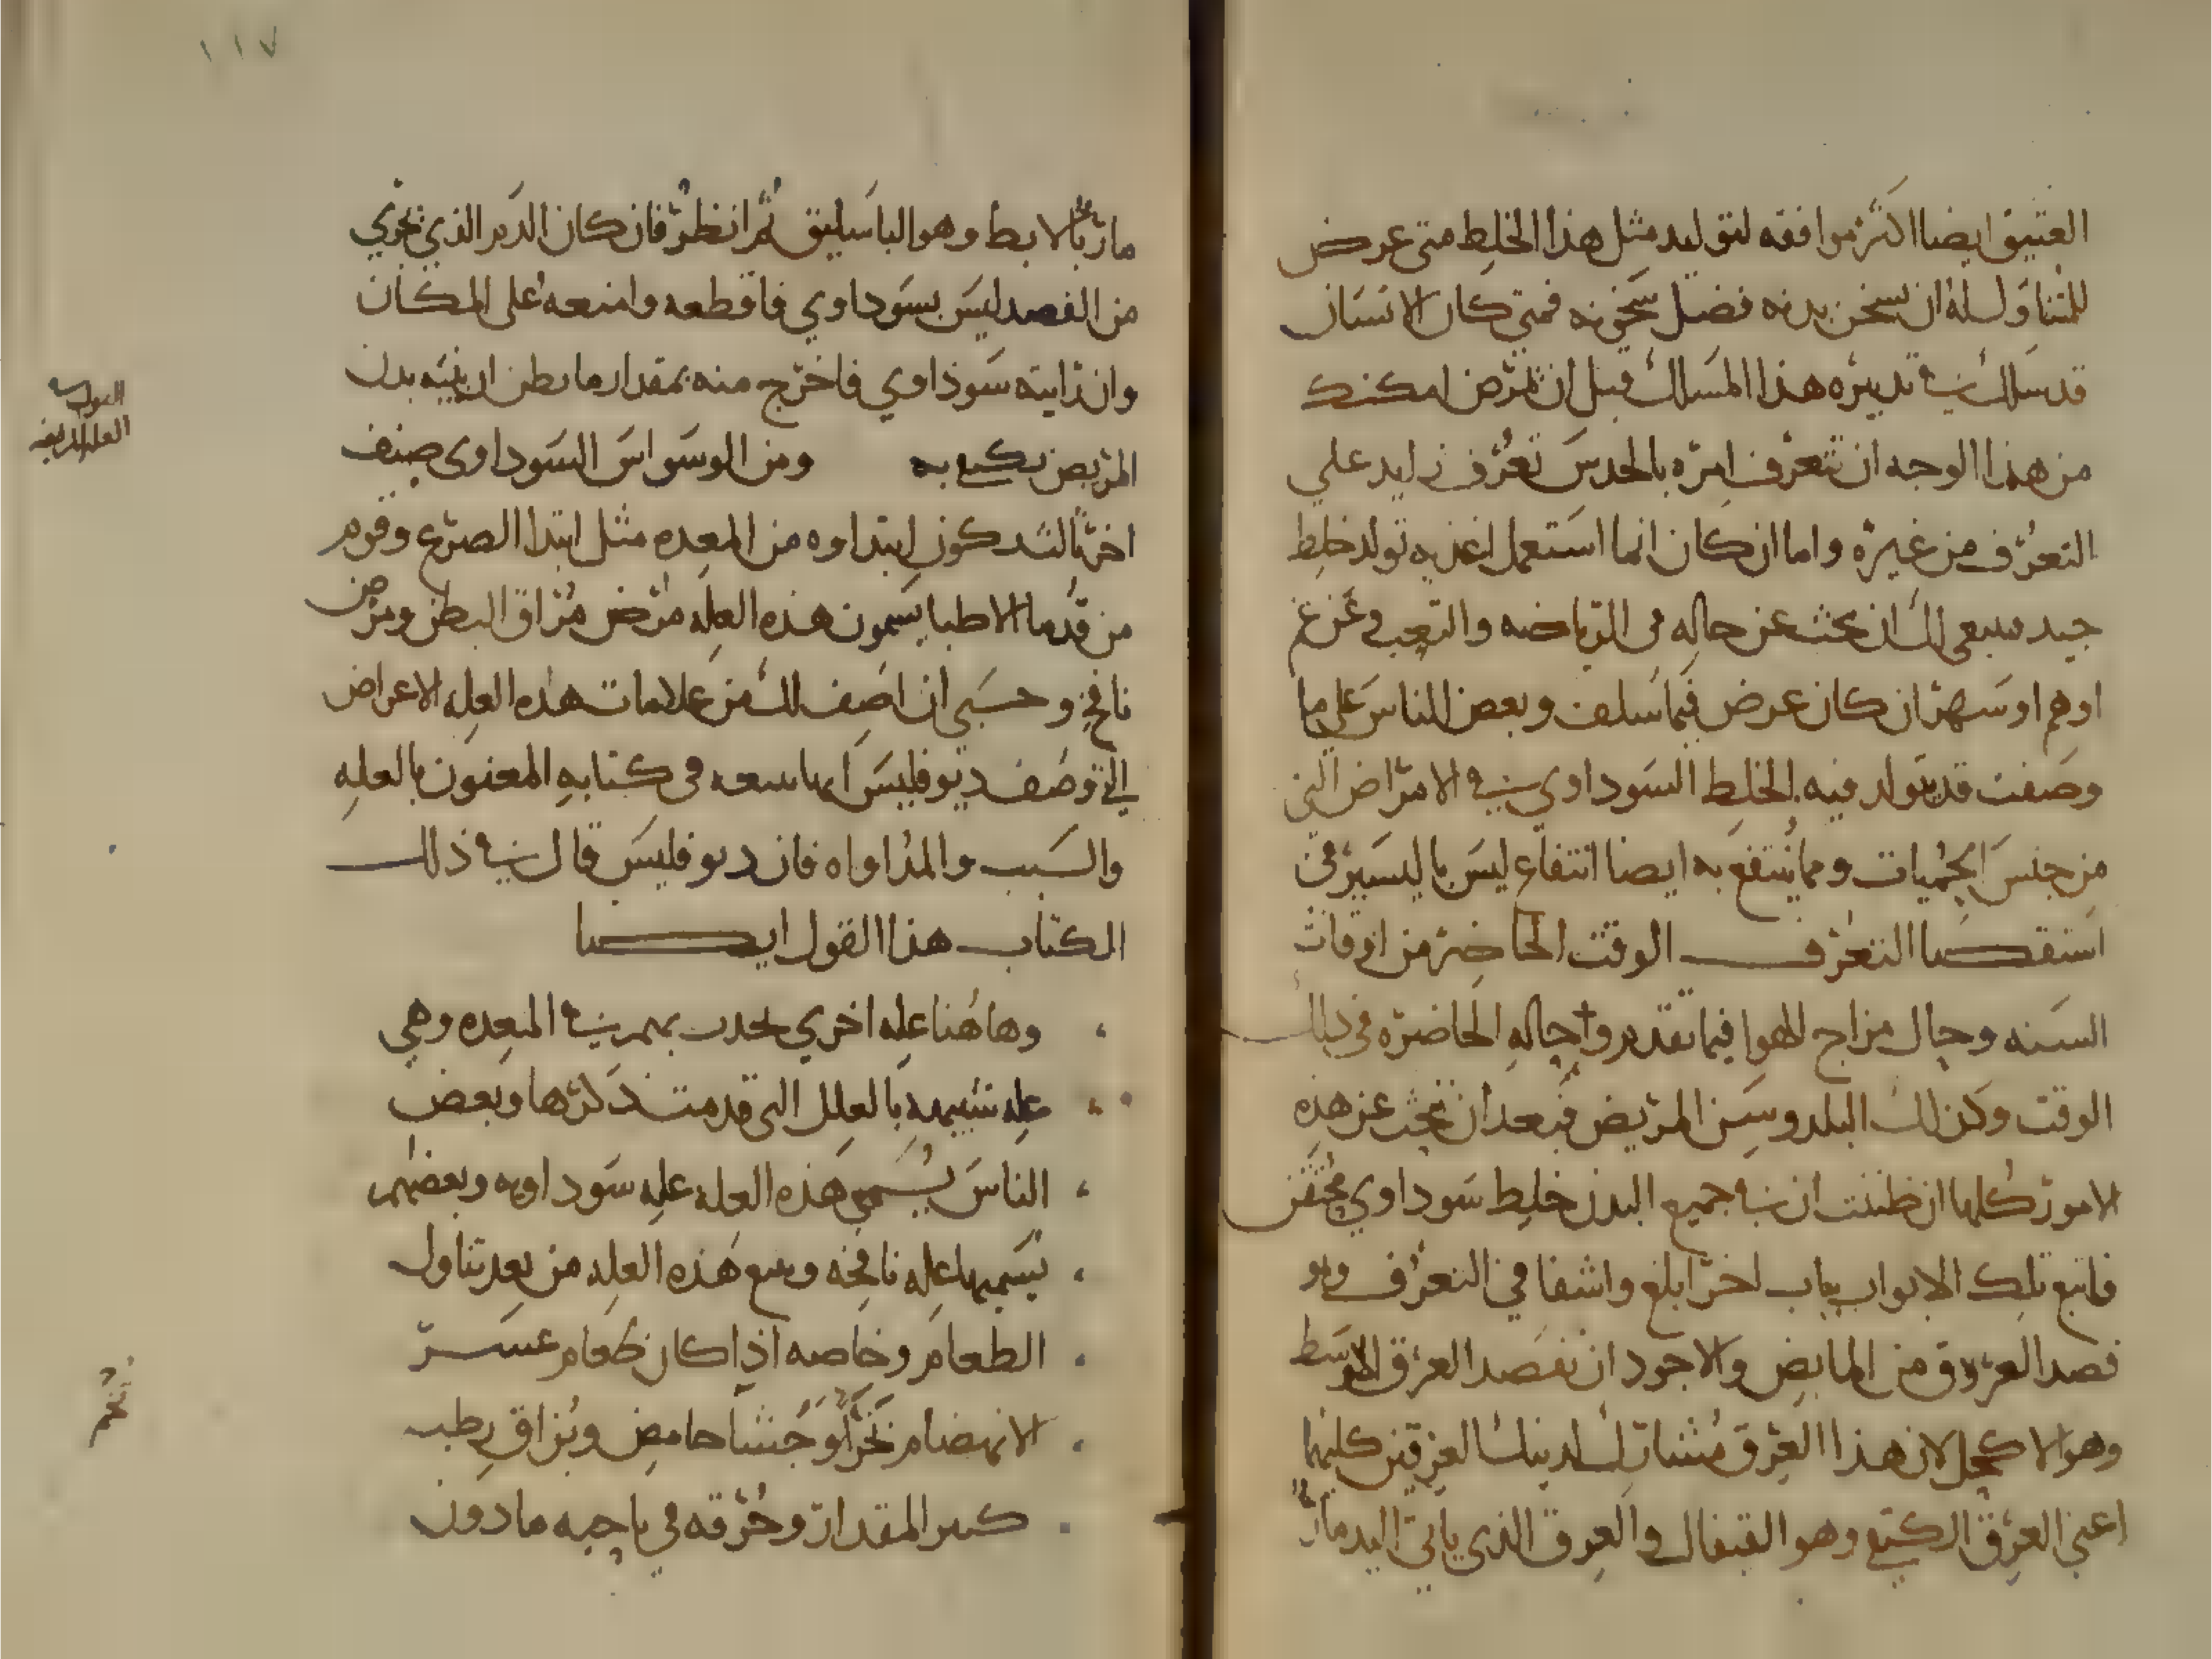 العتيق ايضا اكثر موافقه لتوليد مثل هذا الخلط متى عرض
للمتناول له ان يسخن بدنه فضل سخونه فمتى كان الانسان
قد سلك في تدبيره هذا المسلك قبل ان يمرض امكنك
من هذا الوجه ان تتعرف امره بالحدس تعرف زايد علي
التعرف من غيره واما ان كان انما استعمل اغذيه تولد خلط
جيد فينبغي لك ان تبحث عن حاله في الرياضه والتعب وعن غم
اوهم اوسهر ان كان عرض فيما سلف وبعض الناس على ما
وصفت قد يتولد فيه الخلط السوداوي في الامراض التي
من جنس الحميات ومما ينتفع به ايضا انتفاع ليس باليسير في
استقصا التعرف الوقت الحاضر من اوقات
السنه وحال مزاج الهوا فيما تقدم وحاله الحاضره في ذلك
الوقت وكذلك البلد وسن المريض فبعد ان تبحث عن هذه
الامور كلها ان ظننت ان في جميع البدن خلط سوداوي محتقن
فاتبع تلك الابواب بباب اخر ابلغ واشفا في التعرف وهو
فصد العروق من المابض والاجود ان تفصد العرق الاوسط
وهو الاكحل لان هذا العرق مشارك لذينك العرقين كليهما
اعني العرق الكتفي وهو القيفال والعرق الذي ياتي اليد مارّاً
١١٧
مارّاً بالابط وهو الباسليق ثم انظر فان كان الدم الذي يجري
من الفصد ليس بسوداوي فاقطعه وامنعه على المكان
وان رايته سوذاوي فاخرج منه بمقدار ما تظن ان بنيه بدن
المريض تكتفي به ومن الوسواس السوداوى صنف
اخر ثالث يكون ابتداوه من المعده مثل ابتدا الصرع وقوم
من قدما الاطبا يسمون هذه العله مرض مراق البطن ومرض
نافخ وحسبي ان اصف لك من علامات هذه العله الاعراض
التي وصف ديوقليس انها تتبعه في كتابه المعنون بالعله
والسبب والمداواه فان ديوقليس قال في ذلك
الكتاب هذا القول ايضا
وهاهنا عله اخري تحدث بهم في المعده وهي
عله شبيهه بالعلل التي قدمت ذكرها وبعض
الناس يسمي هذه العله عله سوداويه وبعضهم
يسميها عله نافخه ويتبع هذه العله من بعد تناول
الطعام وخاصه اذا كان طعام عسر
الانهضام تخر او جشا حامض وبزاق رطب
كثير المقدار وحرقه في ناحيه ما دون